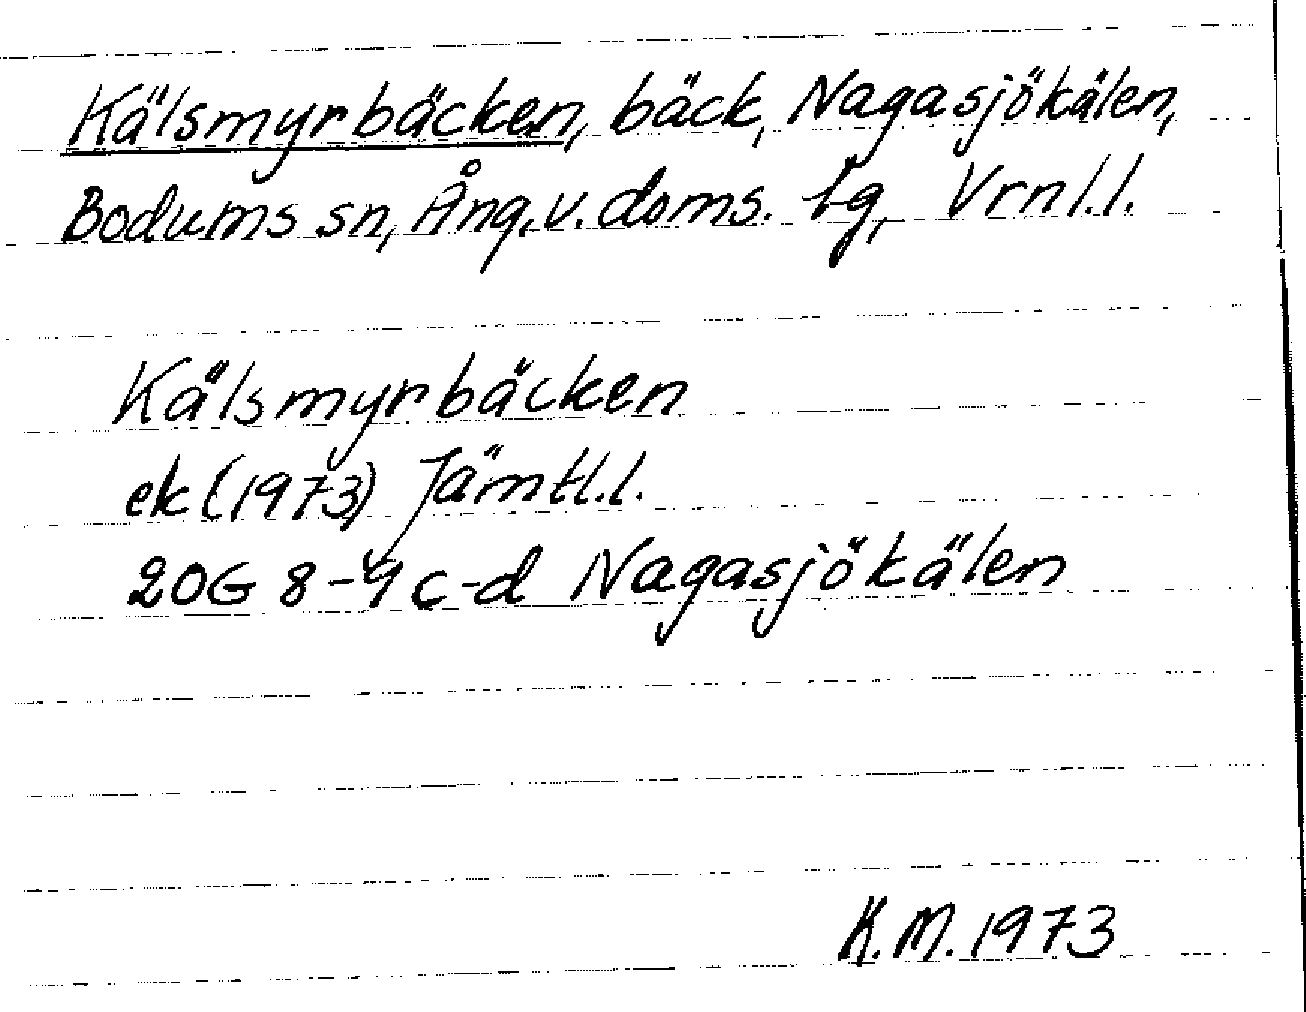 Kälsmyrbäcken, bäck, Nagasjökälen,
Bodums sn, Ång. v. doms. tg, Vrnl.l.
Kälsmyrbäcken
ek (1973) Jämtl.l.
20G 8-9 c-d Nagasjökälen
K.M. 1973